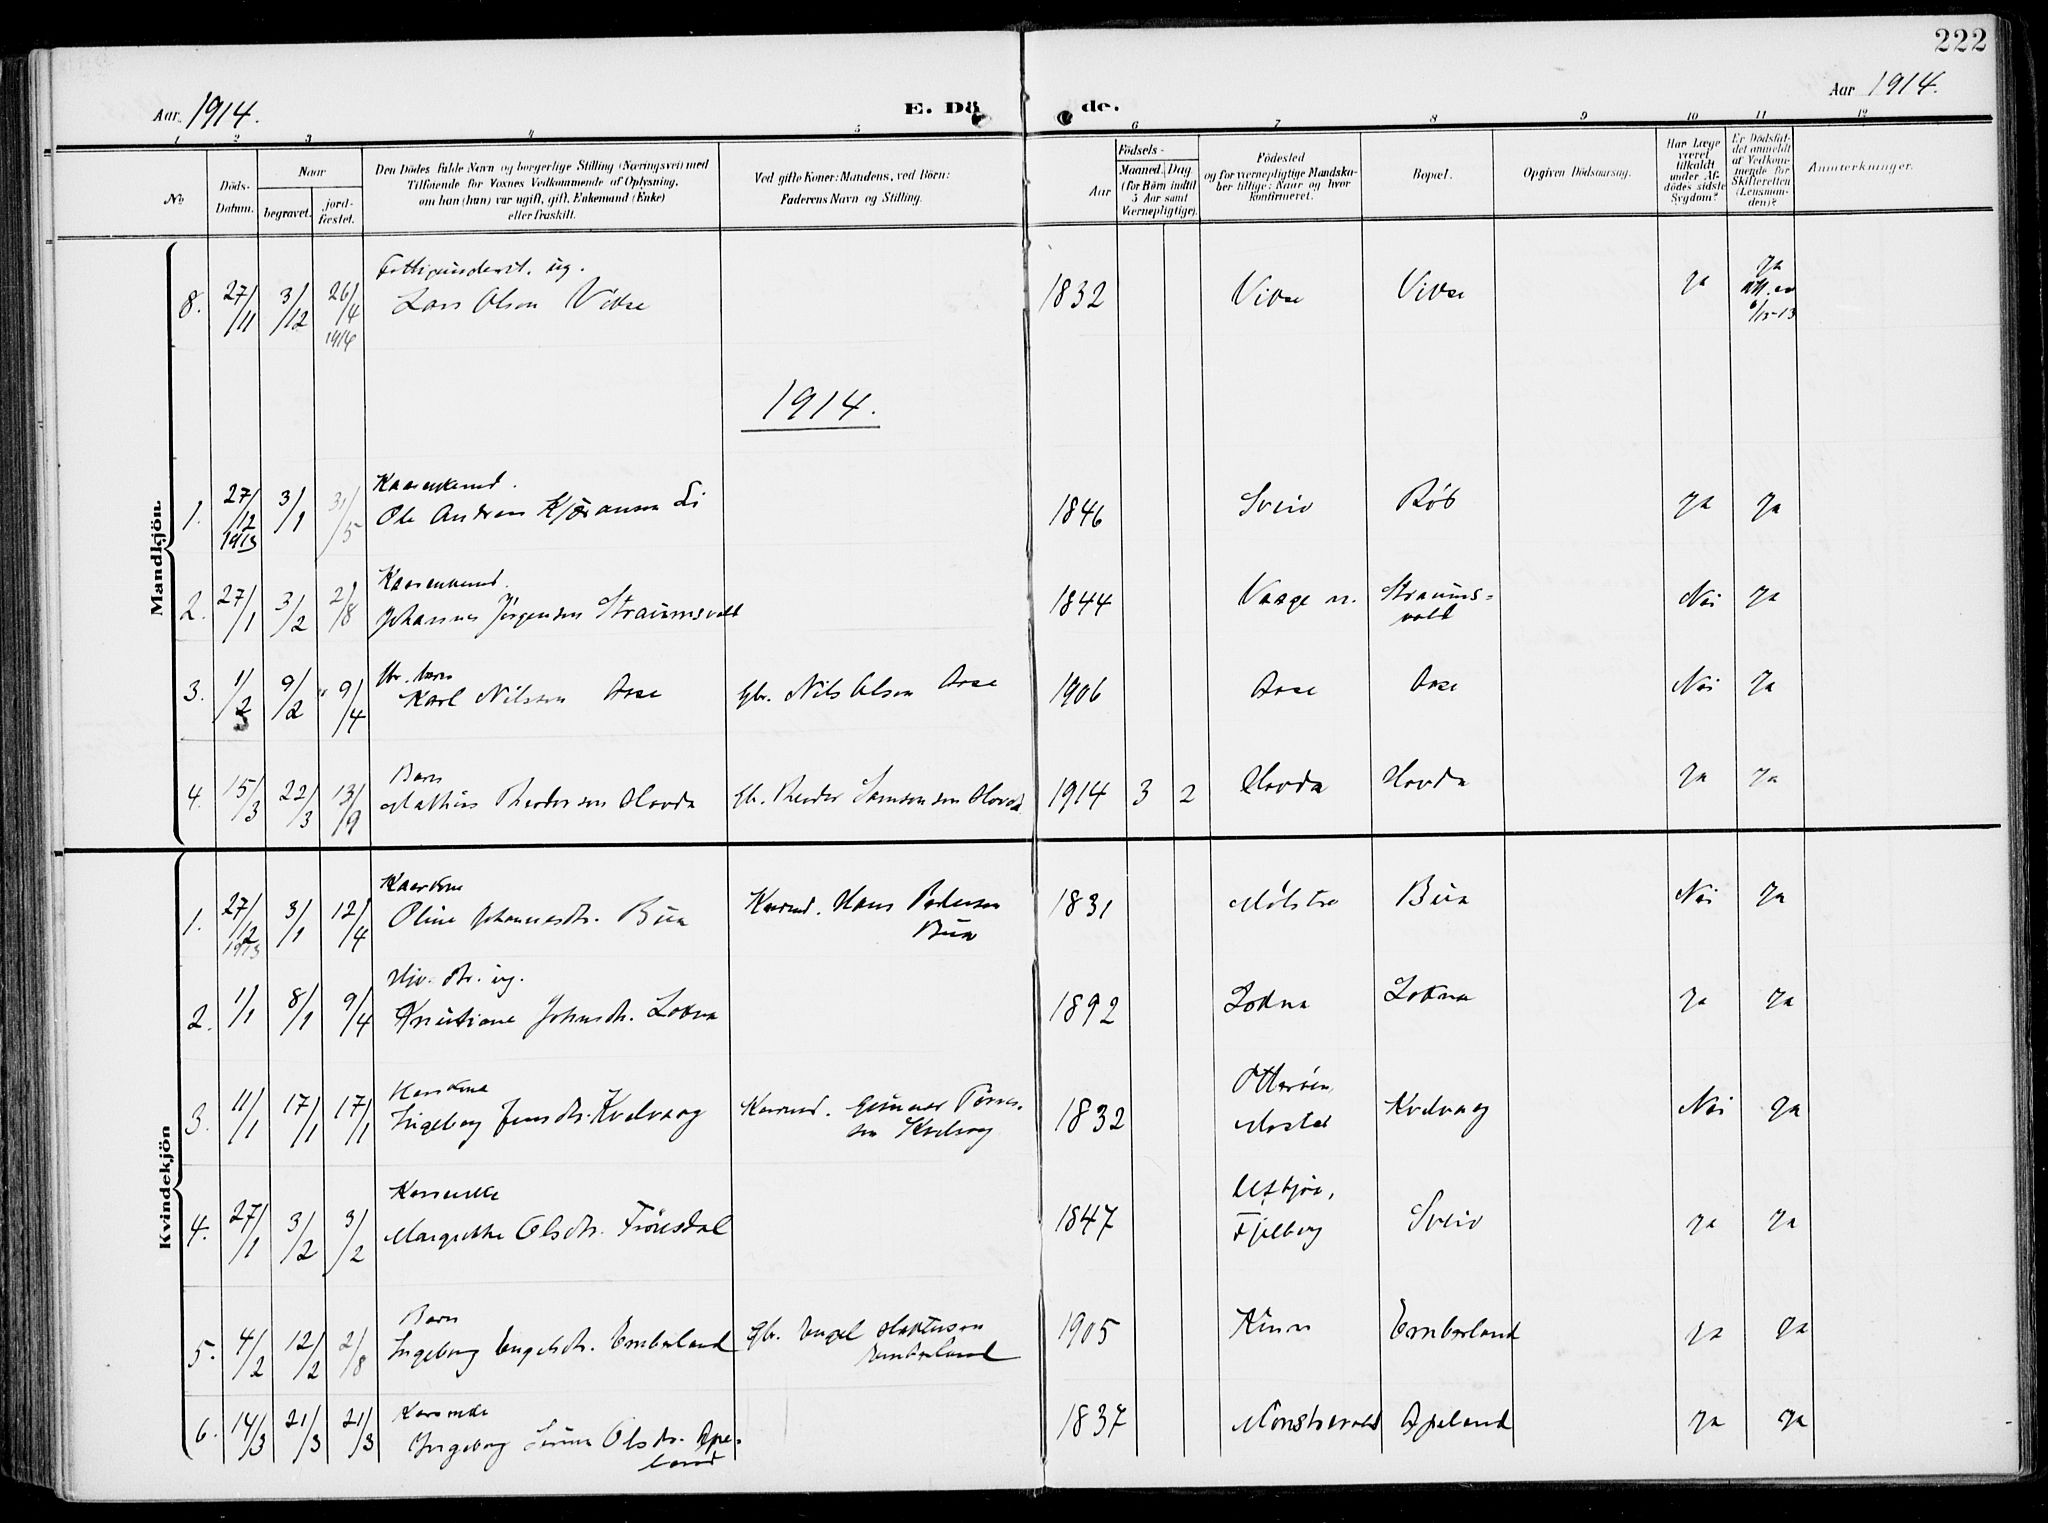 222
Aar 1914.
E. Döde.
Aar 1914.
1 2 3 4 5 6 7 8 9 10 11 12
No
Döds-Datum.
Naar
begravet.
jord-fæstet.
Den Dödes fulde Navn og borgerlige Stilling (Næringsvei) med
Tilföiende for Voxnes Vedkommende af Oplysning,
om han (hun) var ugift, gift, Enkemand (Enke)
eller fraskilt.
Ved gifte Koner: Mandens, ved Börn:
Faderens Navn og Stilling.
Födsels-
Aar
Maaned. Dag.
(for Börn indtil
5 Aar samt
Værnepligtige).
Födested
og for værnepligtige Mandska-
ber tillige: Naar og hvor
konfirmeret.
Bopæl.
Opgiven Dödsaarsag.
Har Læge
været
tilkaldt
under Af-
dödes sidste
Sygdom?
Er Dödsfal-
det anmeldt
af Vedkom-
mende for
Skifteretten
(Lensman-
den)?
Anmærkninger.
Mandkjön.
8. 27/11 3/12 26/4 1914 ug.
Lars Olson Vikse 1832 Vikse Vikse ja ja
1914.
1. 27/12 1913 3/1 31/5 Kaarenkemd.
Ole Andreas Kjøranson Li 1846 Sveio Røb ja ja
2. 27/1 3/2 2/8 Kaarenkemd.
Johannes Jørgensen Straumsvold 1844 Vaage n. Straums=
vold Nei ja
3. 1/2 9/2 9/4 Gbr. barn
Karl Nilsson Aase Gbr. Nils Olson Aase 1906 Aase Aase Nei ja
4. 15/3 22/3 13/9 Barn
Mathias Theodorsen Hovda Gb. Theodor Samsonsen Hovda 1914 3 2 Hovda Hovda ja ja
Kvindekjön
1. 27/12 1913 3/1 12/4 Kaarkone
Oline Johannesdtr. Bua Kaarmd. Hans Pederson
Bua 1831 Mølstre Bua Nei ja
2. 1/1 8/1 9/4 ug.
Kristiane Johnsdtr. Lokna 1892 Lokna Lokna ja ja
3. 11/1 17/1 17/1 Kaarkone
Ingeborg Jensdtr. Kvalvaag Kaarmd. Gunnar Tørres-
son Kvalvaag 1832 Otterøen
Moster Kvalvaag Nei ja
4. 27/1 3/2 3/2 Kaarenke
Margrethe Olsdtr. Trönsdal 1847
Fjelberg Sveio ja ja
5. 4/2 12/2 2/8 Barn
Ingeborg Engelsdtr. Emberland Gbr. Engel
Emberland 1905 Kinn Emberland ja ja
6. 14/3 21/3 21/3 Kaarenke
Ingeborg Olsdtr. Ape-
land 1837 Apeland ja ja